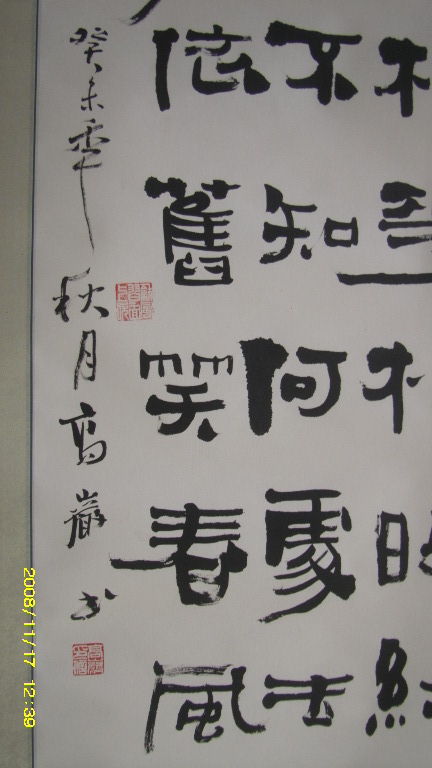 不知何處去
依舊笑春風
癸未年秋月高巖书
2008/11/17 12:39